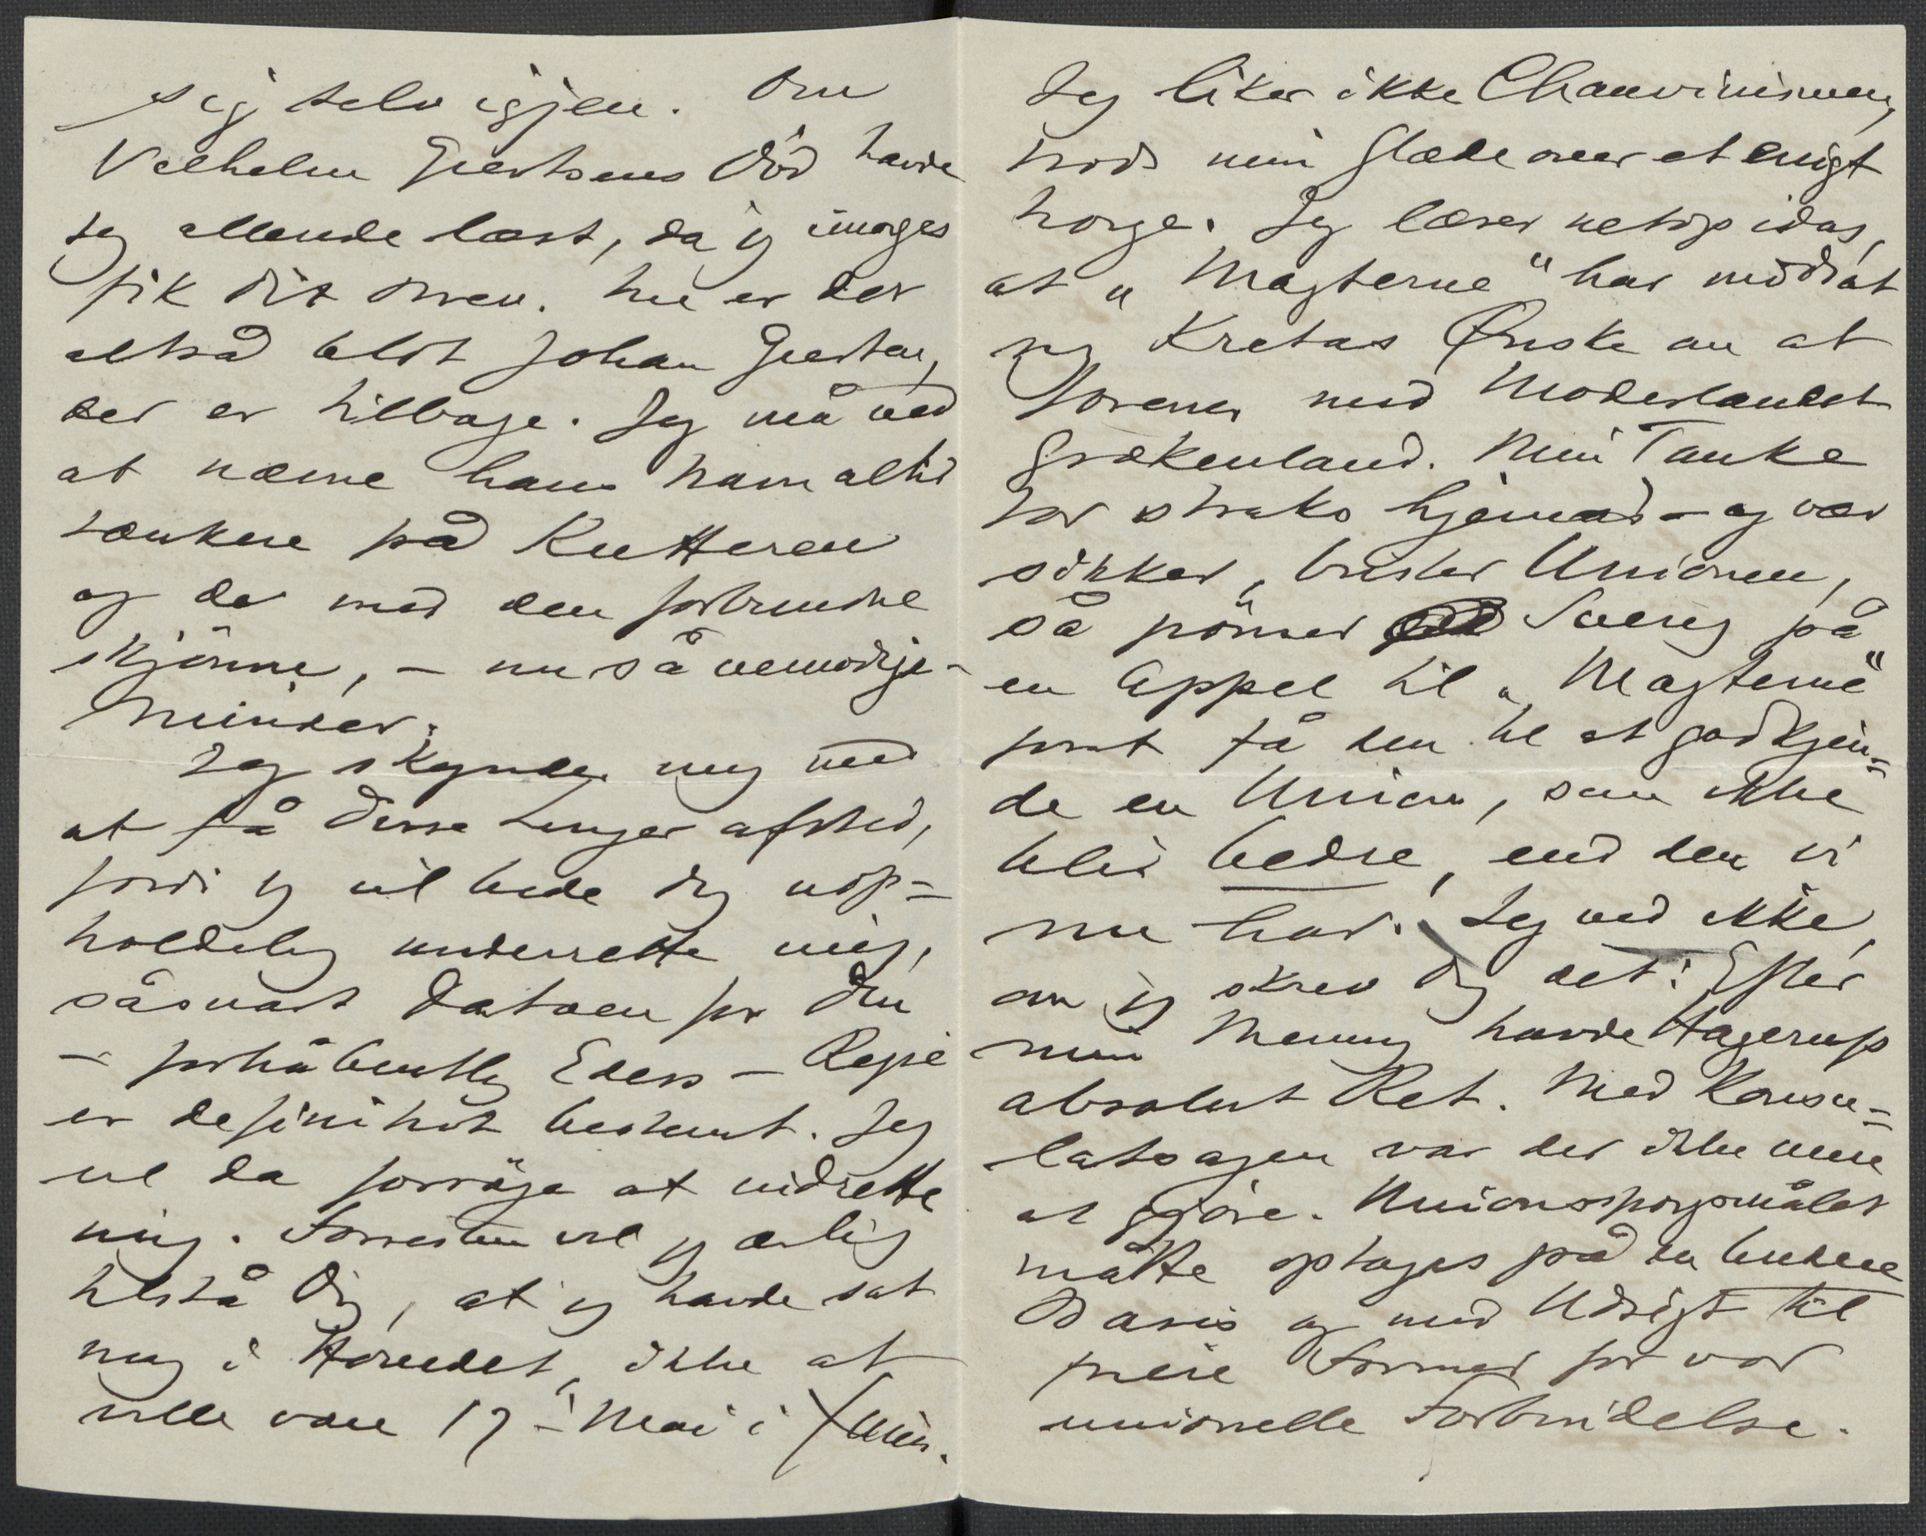 sig selv igjen. Om
Vilhelm Giertsens Död havde
jeg allerede læst, da jeg imorges
fik dit Brev. Nu er der
altså blot Johan Giertsen,
der er tilbage. Jeg må ved
at nævne hans Navn altid
tænke på Kutteren
og de med den forbundne
skjönne, – nu så vemodige
Minder.
Jeg skynder mig med
at få disse Linjer afsted,
fordi jeg vil bede dig uop-
holdelig underrette mig,
såsnart Datoen for din
– forhåbentlig Eders – Rejse
er definitivt bestemt. Jeg
vil da forsöge at indrette
mig. Forresten vil jeg ærlig
tilstå Dig, at jeg havde sat
mig i Hovedet, ikke at
ville være 17de Mai i
Jeg liker ikke Chauvinismen,
trods min Glæde over et enigt
Norge. Jeg læser netop idag,
at "Magterne" har modsat
sig Kretas Ønske om at
forenes med Moderlandet
Grækenland. Min Tanke
før straks hjemad – og vær
sikker, brister Unionen,
så pönser Sverig på
en Appel til "Magterne"
for at få dem til at godkjen-
de en Union, som ikke
blir bedre, end den vi
nu har. Jeg ved ikke,
om jeg skrev dig det: Efter
min Mening havde Hagerup
absolut Ret. Med Konsu-
latsagen var der ikke mere
at gjöre. Unionsspörgsmålet
måtte optages på en bredere
Basis og med Udsigt til
friere Former for vor
unionelle Forbindelse.